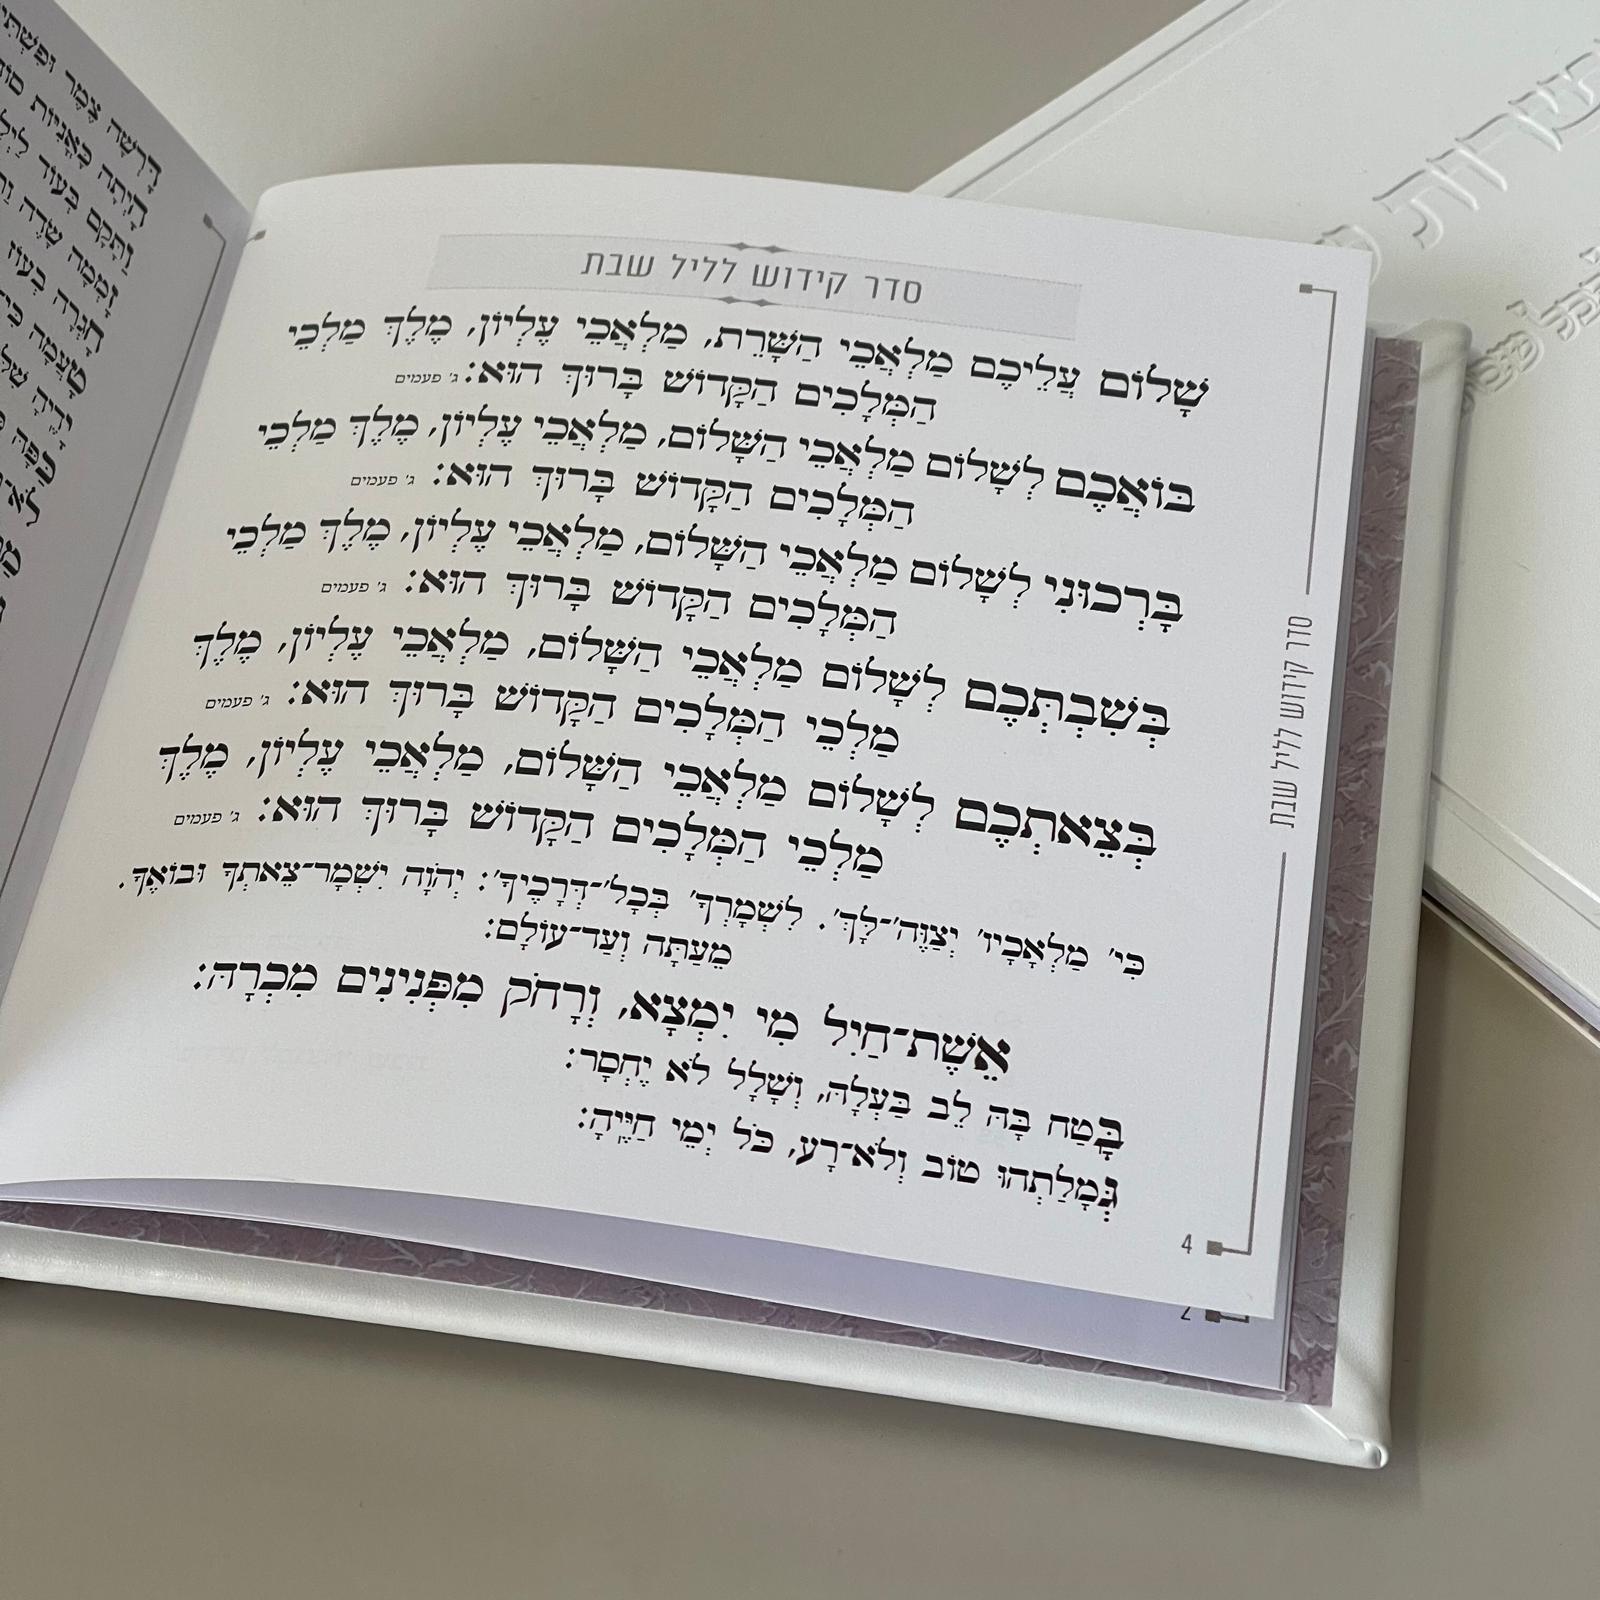 סדר קידוש לליל שבת
שָׁלוֹם עֲלֵיכֶם מַלְאֲכֵי הַשָּׁרֵת, מַלְאֲכֵי עֶלְיוֹן, מֶלֶךְ מַלְכֵי
הַמְּלָכִים הַקָּדוֹשׁ בָּרוּךְ הוּא: ג' פעמים
בּוֹאֲכֶם לְשָׁלוֹם מַלְאֲכֵי הַשָּׁלוֹם, מַלְאֲכֵי עֶלְיוֹן, מֶלֶךְ מַלְכֵי
הַמְּלָכִים הַקָּדוֹשׁ בָּרוּךְ הוּא: ג' פעמים
בָּרְכוּנִי לְשָׁלוֹם מַלְאֲכֵי הַשָּׁלוֹם, מַלְאֲכֵי עֶלְיוֹן, מֶלֶךְ מַלְכֵי
הַמְּלָכִים הַקָּדוֹשׁ בָּרוּךְ הוּא: ג' פעמים
בְּשִׁבְתְּכֶם לְשָׁלוֹם מַלְאֲכֵי הַשָּׁלוֹם, מַלְאֲכֵי עֶלְיוֹן, מֶלֶךְ
מַלְכֵי הַמְּלָכִים הַקָּדוֹשׁ בָּרוּךְ הוּא: ג' פעמים
בְּצֵאתְכֶם לְשָׁלוֹם מַלְאֲכֵי הַשָּׁלוֹם, מַלְאֲכֵי עֶלְיוֹן, מֶלֶךְ
מַלְכֵי הַמְּלָכִים הַקָּדוֹשׁ בָּרוּךְ הוּא: ג' פעמים
כִּי' מַלְאָכָיו' יְצַוֶּה'־לָּךְ'. לִשְׁמָרְךָ' בְּכָל'־דְּרָכֶיךָ': יְהֹוָה יִשְׁמָר־צֵאתְךָ וּבוֹאֶךָ.
מֵעַתָּה וְעַד־עוֹלָם:
אֵשֶׁת־חַיִל מִי יִמְצָא, וְרָחֹק מִפְּנִינִים מִכְרָהּ:
בָּטַח בָּהּ לֵב בַּעְלָהּ, וְשָׁלָל לֹא יֶחְסָר:
גְּמָלַתְהוּ טוֹב וְלֹא־רָע, כֹּל יְמֵי חַיֶּיהָ:
סדר קידוש לליל שבת
4
2
דָּרְשָׁה צֶמֶר
הָיְתָה כָּאֳנִיּוֹת
וַתָּקָם בְּעוֹד
זָמְמָה שָׂדֶה
חָגְרָה בְעוֹז
טָעֲמָה
יָדֶיהָ
כַּפָּהּ